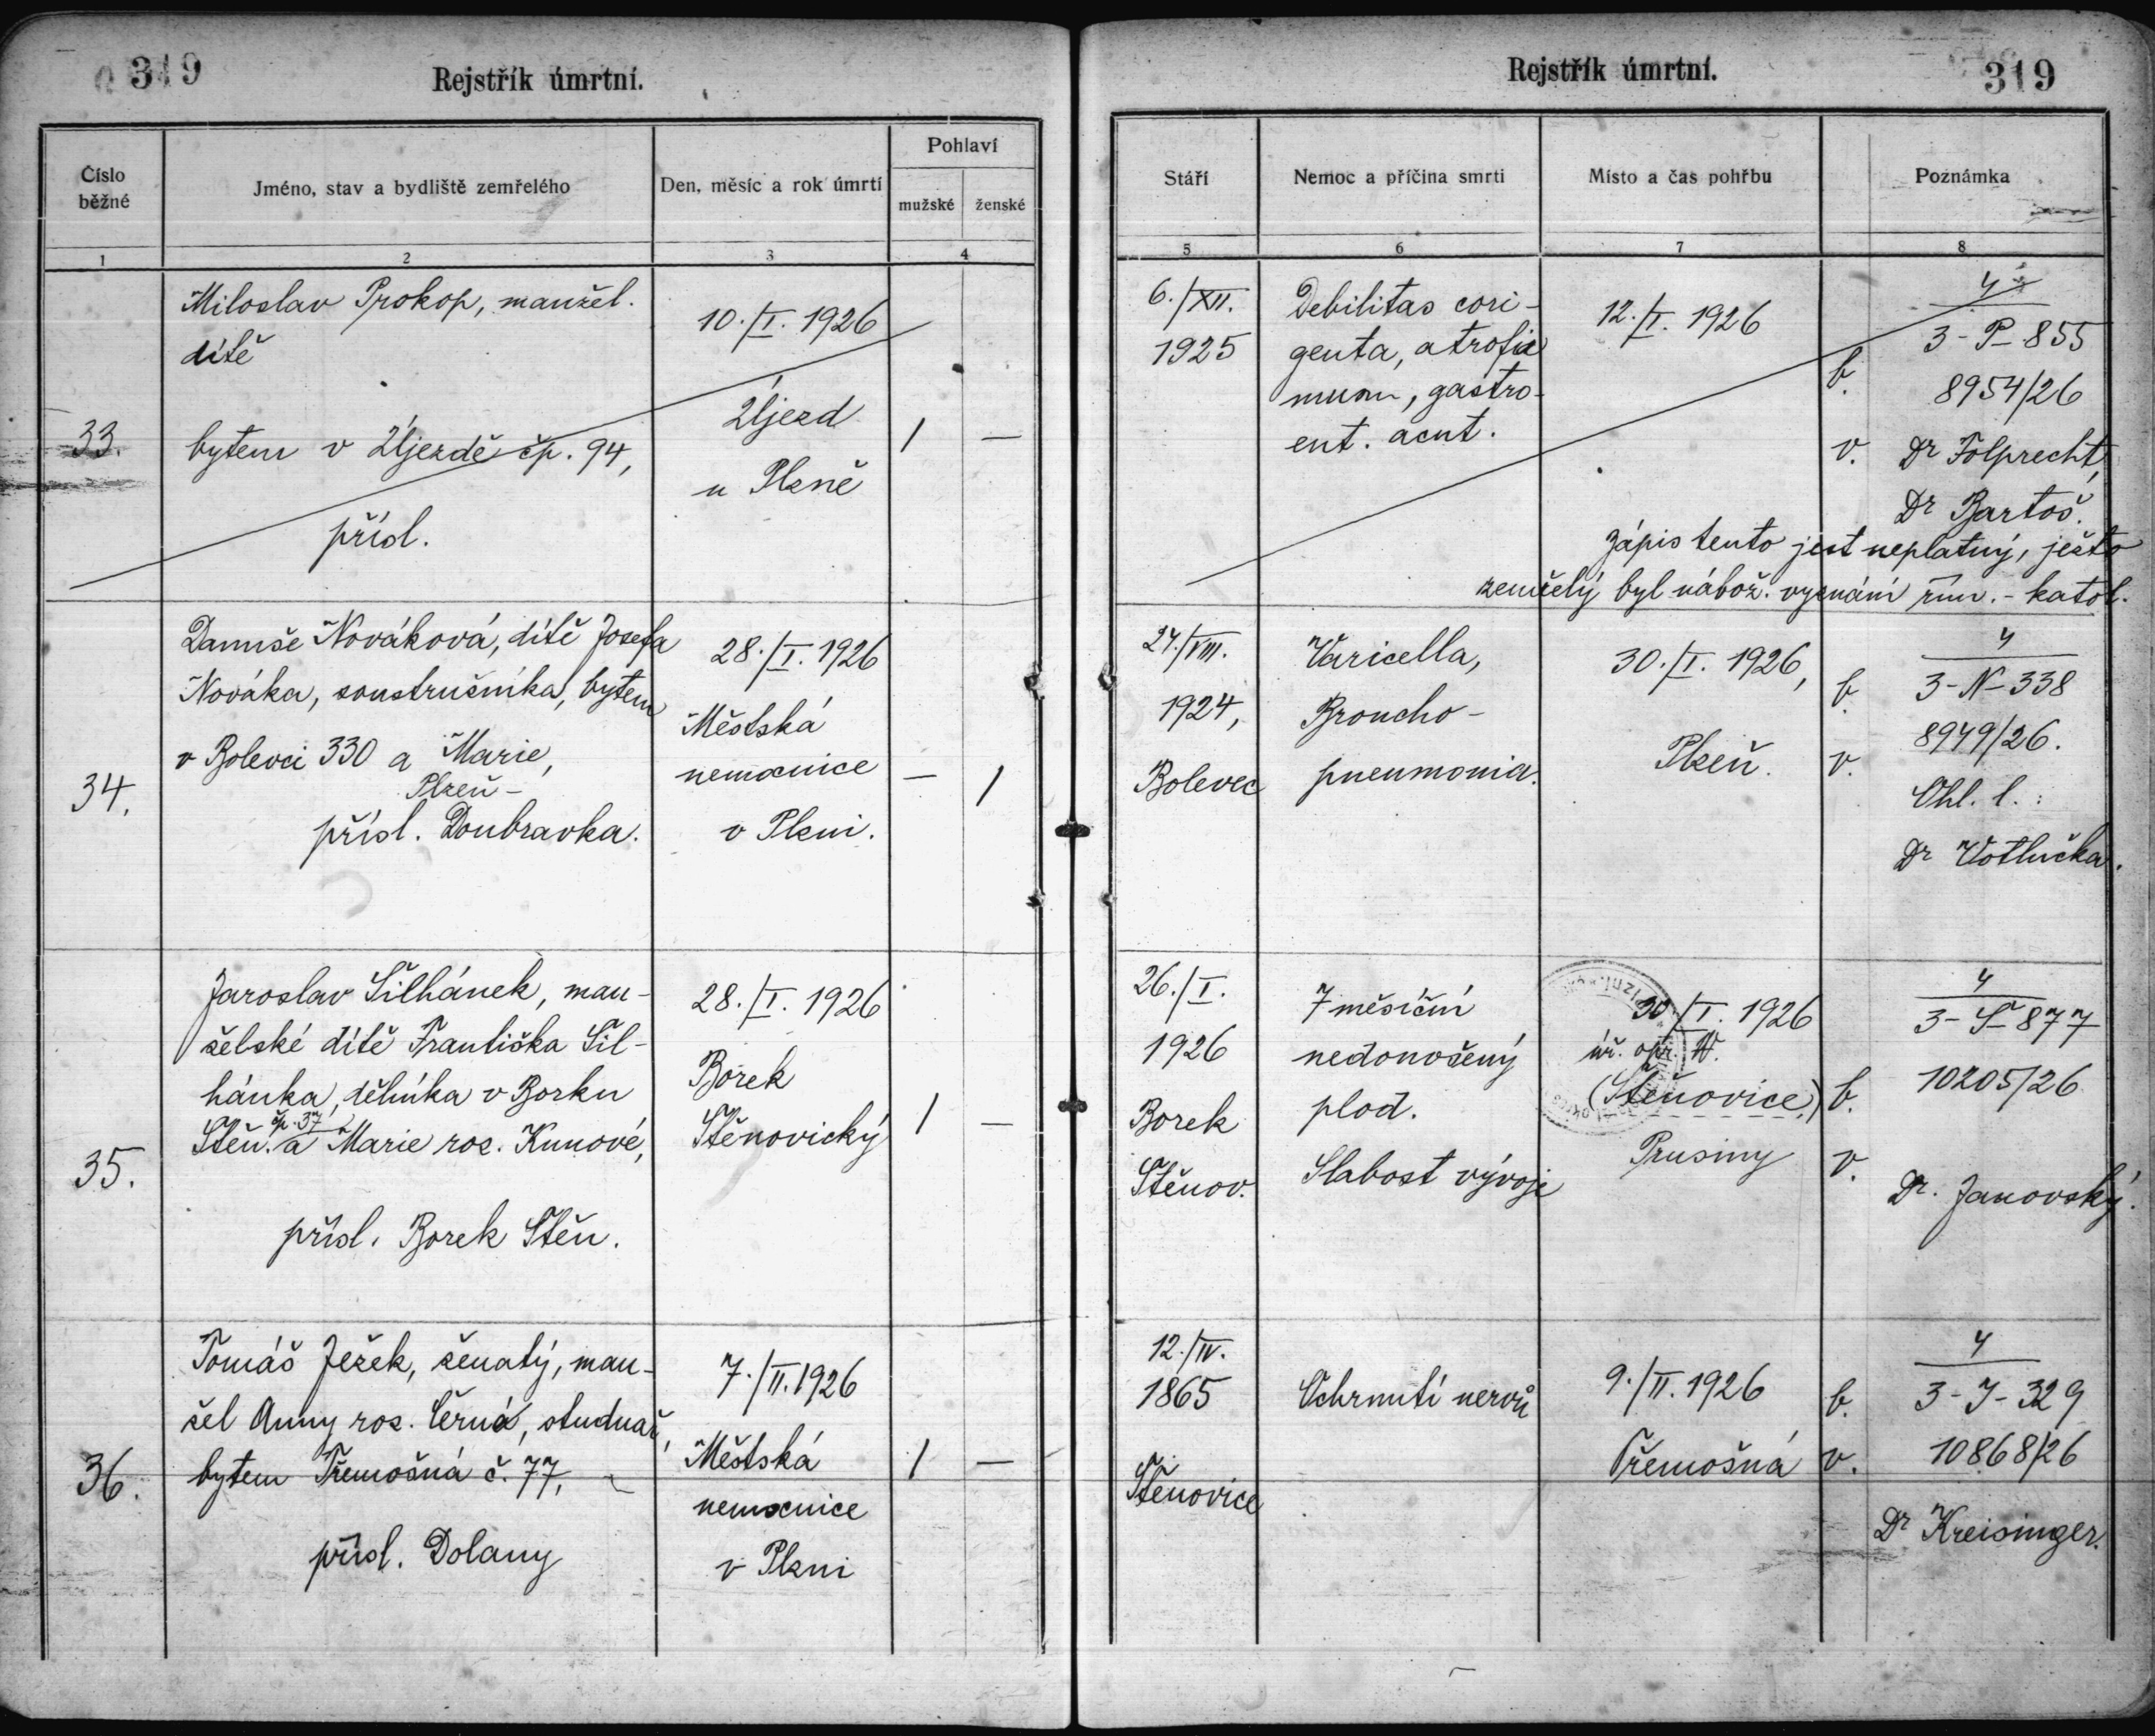 319
Rejstřík úmrtní.
Číslo běžné
Jméno, stav a bydliště zemřelého
Den, měsíc a rok úmrtí
Pohlaví
mužské
ženské
1
2
3
4
Miloslav Prokop, manžel.
dítě
33.
bytem v Újezdě čp. 94,
přísl.
10./I. 1926
Újezd
u Plzně
1
—
34.
Danuše Nováková, dítě Josefa
Nováka, soustružníka, bytem
v Bolevci 330 a Marie,
Plzeň-
přísl. Doubravka.
28./I. 1926
Městská
nemocnice
v Plzni.
—
1
35.
Jaroslav Šilhánek, man-
želské dítě Františka Šil-
hánka, dělníka v Borku
čp. 37
Štěn. a Marie roz. Kunové,
přísl. Borek Štěn.
28./I. 1926
Borek
Štěnovický
1
—
36.
Tomáš Ježek, ženatý, man-
žel Anny roz. Černá, studnař,
bytem Třemošná č. 77,
přísl. Dolany
7./II. 1926
Městská
nemocnice
v Plzni
1
—
Rejstřík úmrtní.
319
Stáří
Nemoc a příčina smrti
Místo a čas pohřbu
Poznámka
5
6
7
8
6./XII.
1925
Debilitas cori-
genta, atrofia
, gastro-
ent. acut.
12./I. 1926
b.
v.
4
3-P-855
8954/26
Dr Folprecht,
Dr Bartoš.
Zápis tento jest neplatný, ježto
zemřelý byl nábož. vyznání řím.-katol.
27./VIII.
1924,
Bolevec
Varicella,
Broncho-
pneumonia.
30./I. 1926,
Plzeň.
b.
v.
4
3-N-338
8979/26.
Ohl. l.:
Dr Votlučka.
26./I.
1926
Borek
Štěnov.
7 měsíční
nedonošený
plod.
Slabost vývoje
30/I. 1926
úř. opr. W.
(Štěnovice)
Prusiny
b.
v.
4
3-Š-877
10205/26
Dr. Janovský.
12./IV.
1865
Štěnovice
Ochrnutí nervů
9./II. 1926
Třemošná
b.
v.
4
3-J-329
10868/26
Dr Kreisinger.